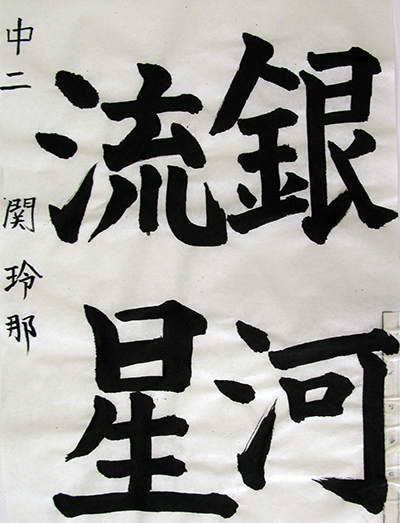 銀河
流星
中二 関玲那